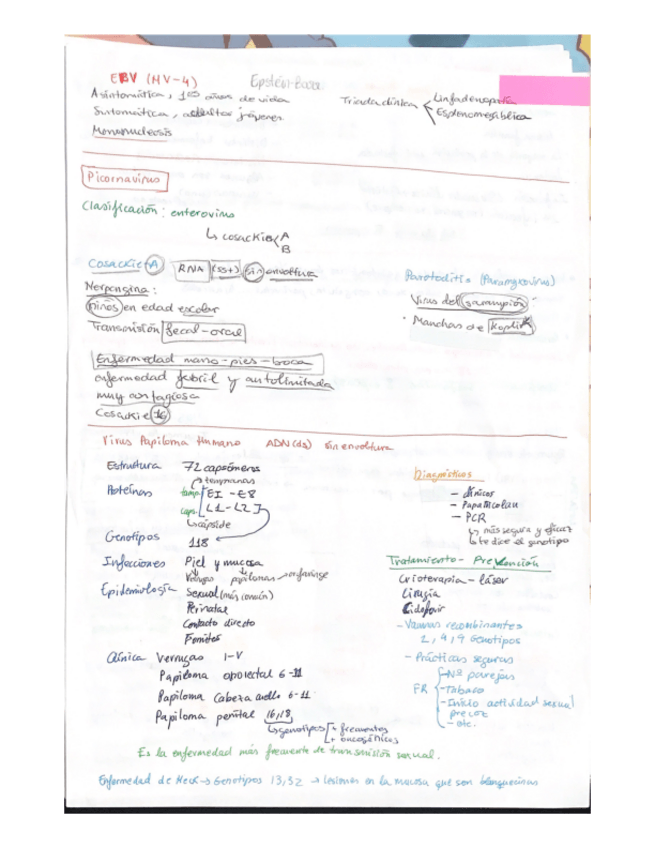 EBV (HV-4) Epstein-Barr
Asintomática, 1os años de vida
Sintomática, adultos jóvenes
Mononucleosis
Triada clínica
Linfadenopatía
Esplenomegalia
Picornavirus
Clasificación: enterovirus
↳ cosackie A
B
Cosackie A RNA (ss+) sin envoltura
Herpangina:
niños en edad escolar
Transmisión fecal-oral
Parotoditis (Paramyxovirus)
Virus del sarampión
· Manchas de Koplik
Enfermedad mano-pies-boca
enfermedad febril y autolimitada
muy contagiosa
Cosackie 16
Virus Papiloma Humano ADN(ds) sin envoltura
Estructura 72 capsómeros
tempranas
Proteínas temp. E1-E8
caps. L1-L2
↳ cápside
Genotipos 118
Infecciones Piel y mucosa
verrugas papilomas → orofaringe
Epidemiología Sexual (más común)
Perinatal
Contacto directo
Fomites
Clínica Verrugas 1-V
Papiloma 6-11
Papiloma Cabeza cuello 6-11
Papiloma genital 16,18
↳ genotipos + frecuentes
+ oncogénicos
Diagnósticos
- clínicos
- Papanicolau
- PCR
↳ más segura y eficaz
↳ te dice el genotipo
Tratamiento - Prevención
Crioterapia - láser
Cirugía
Cidofovir
- Vacunas recombinantes
2, 4, 9 Genotipos
- Prácticas seguras
FR
- Nº parejas
- Tabaco
- Inicio actividad sexual
precoz
- etc.
Es la enfermedad más frecuente de transmisión sexual.
Enfermedad de Heck → Genotipos 13,32 → lesiones en la mucosa que son blanquecinas